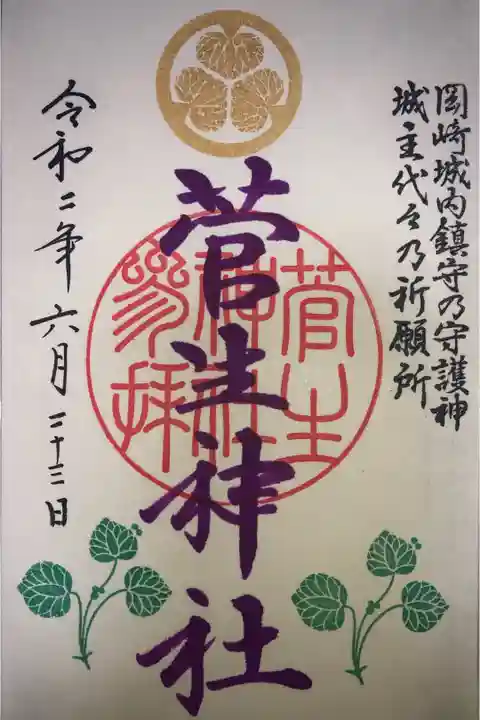 岡崎城内鎮守乃守護神
城主代々乃祈願所
菅生神社
菅生
神社
参拝
令和二年六月二十三日